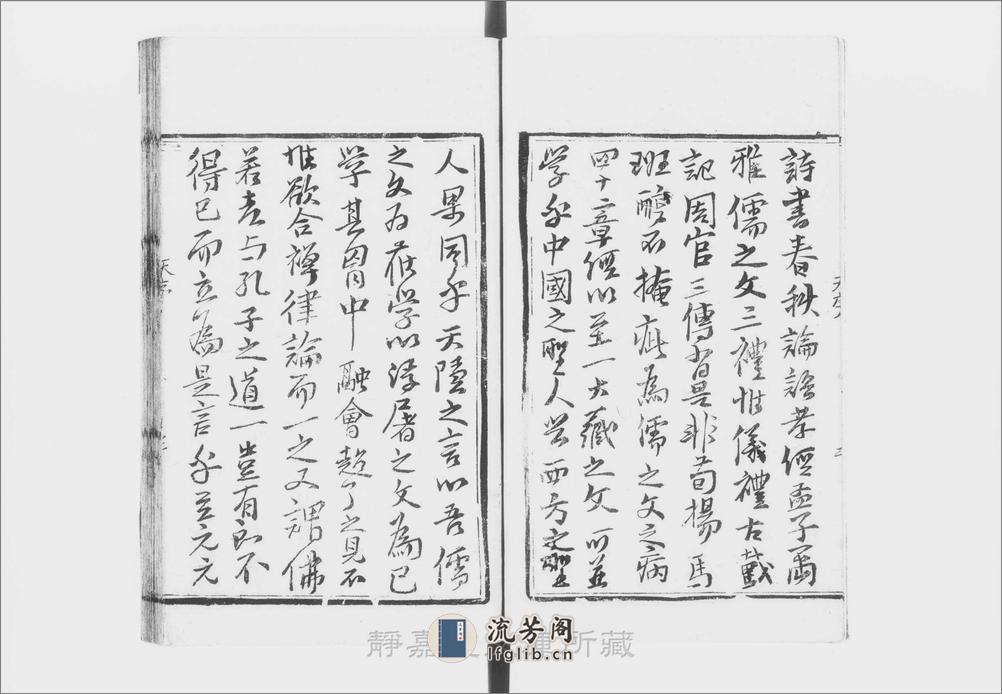 詩書春秋論語孝經孟子爾
雅儒之文三禮惟儀禮古戴
記周官三傳皆是非荀揚馬
班醇不掩疵為儒之文之病
四十二章經以至一大藏之文可並
学乎中國之聖人若西方之聖
人果同乎天隱之言以吾儒
之文为在学以浮屠之文為已
学其胷中融會超了之見不
惟欲合禅律論而一之又謂佛
若老与孔子之道一豈有即不
得已而立為是言乎至元元
流芳阁
lfglib.cn
靜嘉 所藏